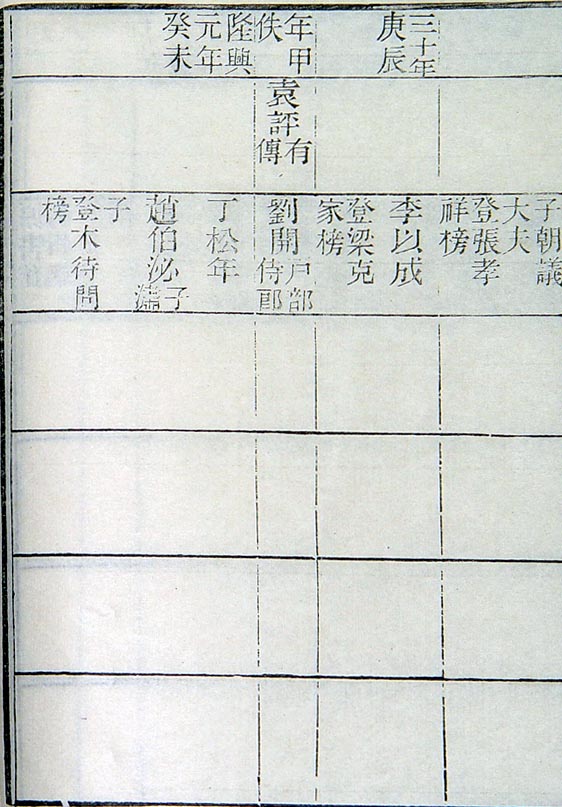 三十年
庚辰
年甲
佚
隆興
元年
癸未
袁評有
傳
子朝議
大夫
登張孝
祥榜
李以成
登梁克
家榜
劉開戶部
侍郎
丁松年
趙伯泌子
子
登木待問
榜